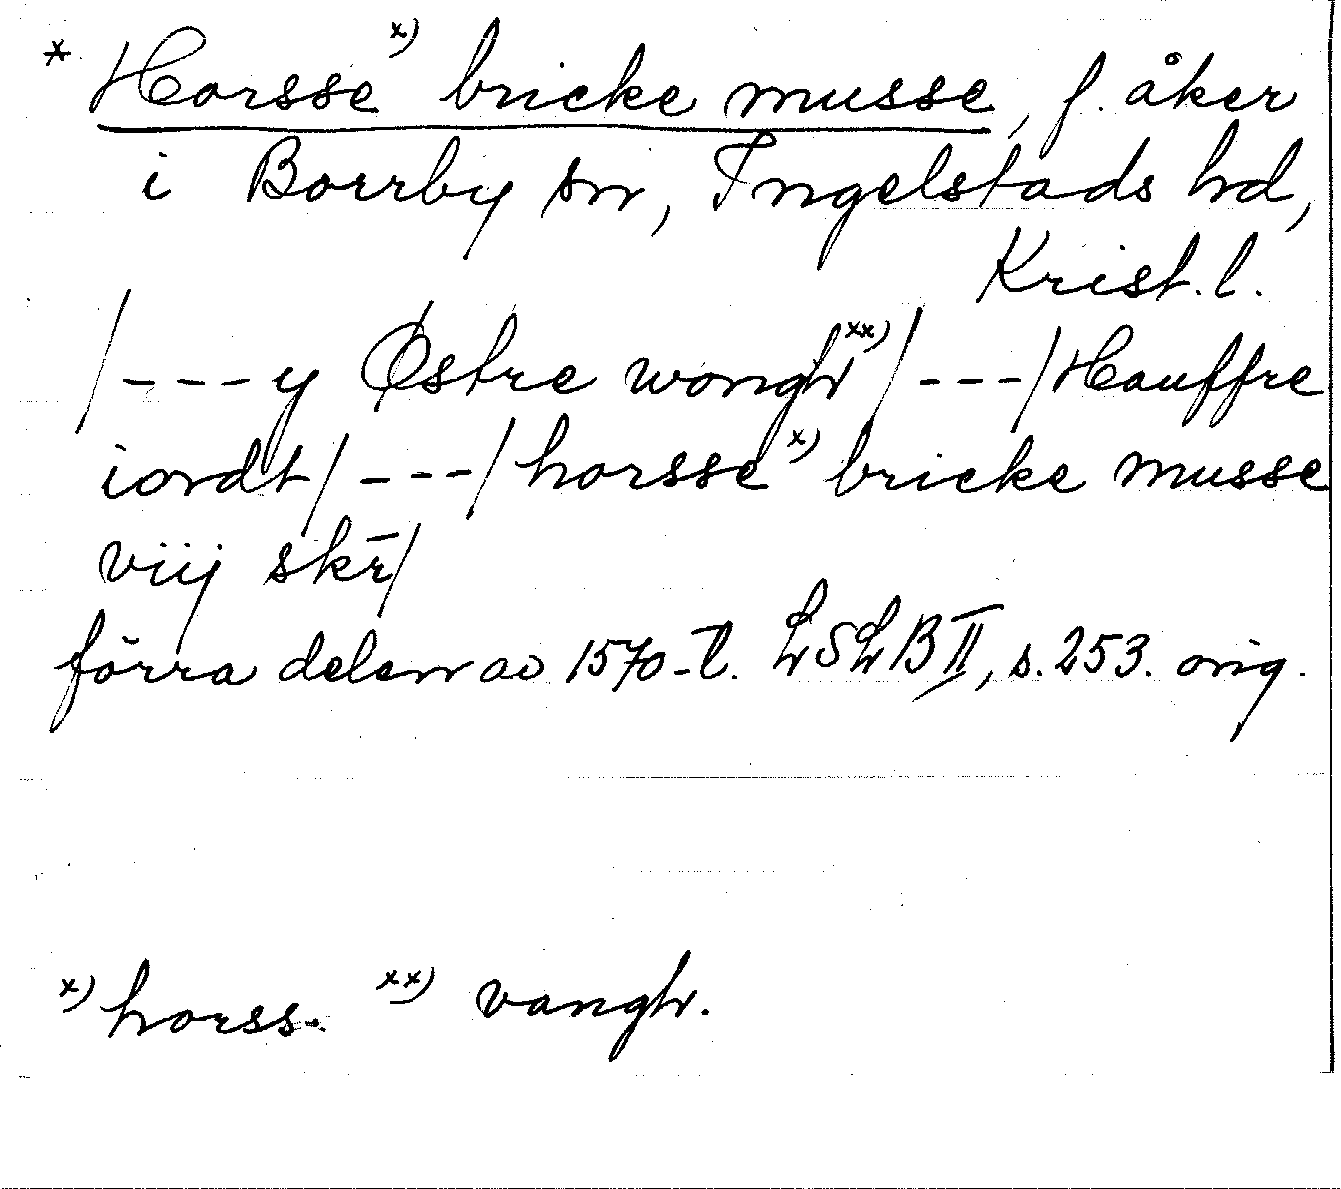 * Horsse x) bricke musse, f. åker
i Borrby sn, Ingelstads hd,
Krist. l.
/---y Østre wongh xx)/---/Hauffre
iordt/---/horsse x) bricke musse
viij skr̄/
förra delen av 1570-t. LSLB II, s. 253. orig.
x) horss. xx) vangh.